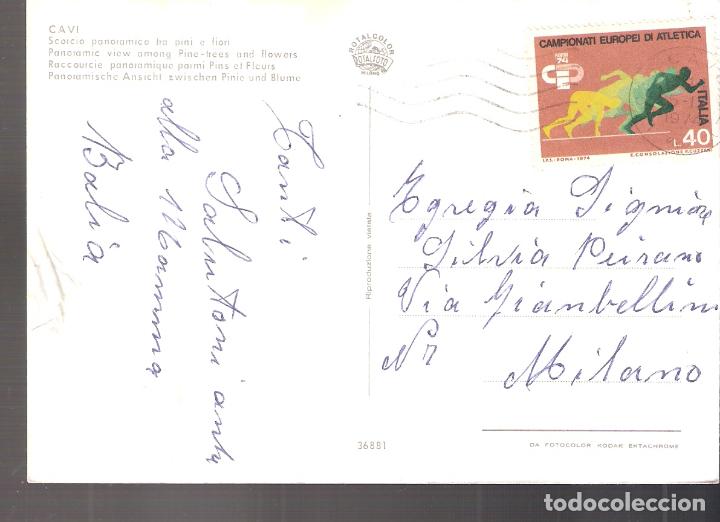 CAVI
Scorcio panoramico tra pini e fiori
Panoramic view among Pine-trees and flowers
Raccourcie panoramique parmi Pins et Fleurs
Panoramische Ansicht zwischen Pinie und Blume
ROTALCOLOR
ROTALFOTO
MILANO
CAMPIONATI EUROPEI DI ATLETICA
ROMA 74
ITALIA
L.40
I.P.S.-ROMA-1974
E.CONSOLAZIONE F.CUZZANI
Tanti
Salutoni anche
alla Mamma
Balia
Riproduzione vietata
Egregia Signora
Silvia Peirano
Via Giambellino
N 7
Milano
36881
DA FOTOCOLOR KODAK EKTACHROME
todocoleccion